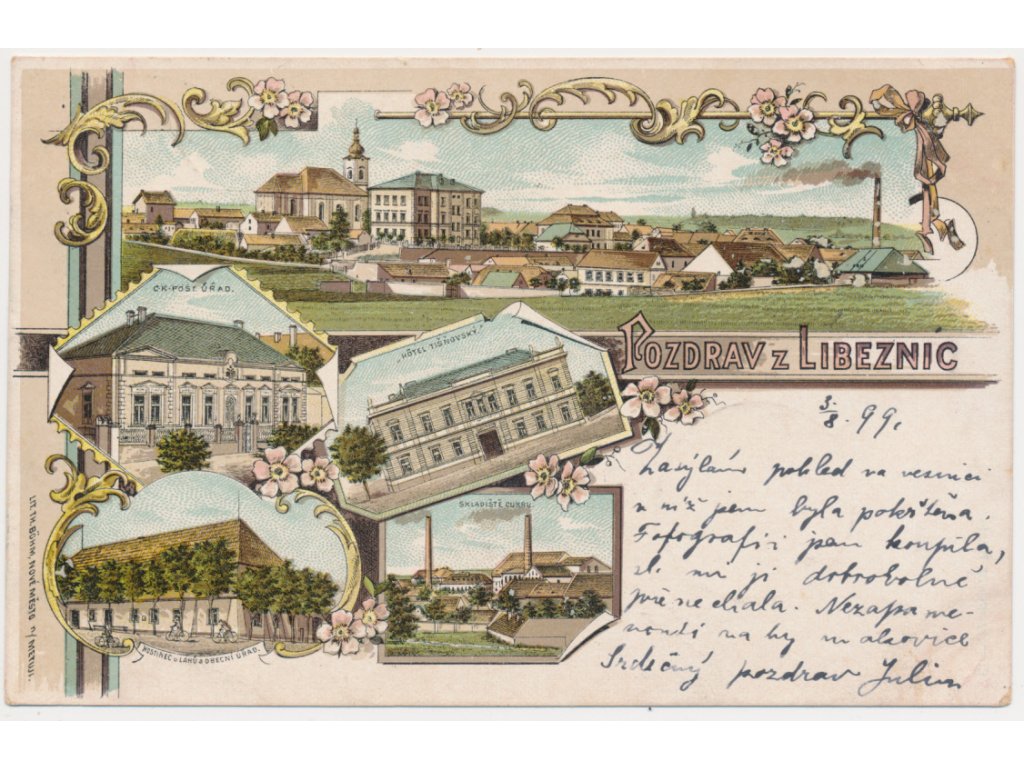 C.K. POŠT. ÚŘAD.
„HÔTEL TIŠŇOVSKÝ“
POZDRAV Z LIBEZNIC
SKLADIŠTĚ CUKRU.
HOSTINEC U LÁHŮ A OBECNÍ ÚŘAD.
LIT. TH. BÖHM, NOVÉ MĚSTO n/METUJÍ.
3/8. 99.
Zasýlám pohled na vesnici
v níž jsem byla pokřtěna.
Fotografii jsem koupila,
mi ji dobrovolně
nechala. Nezapome-
na
Srdečný pozdrav